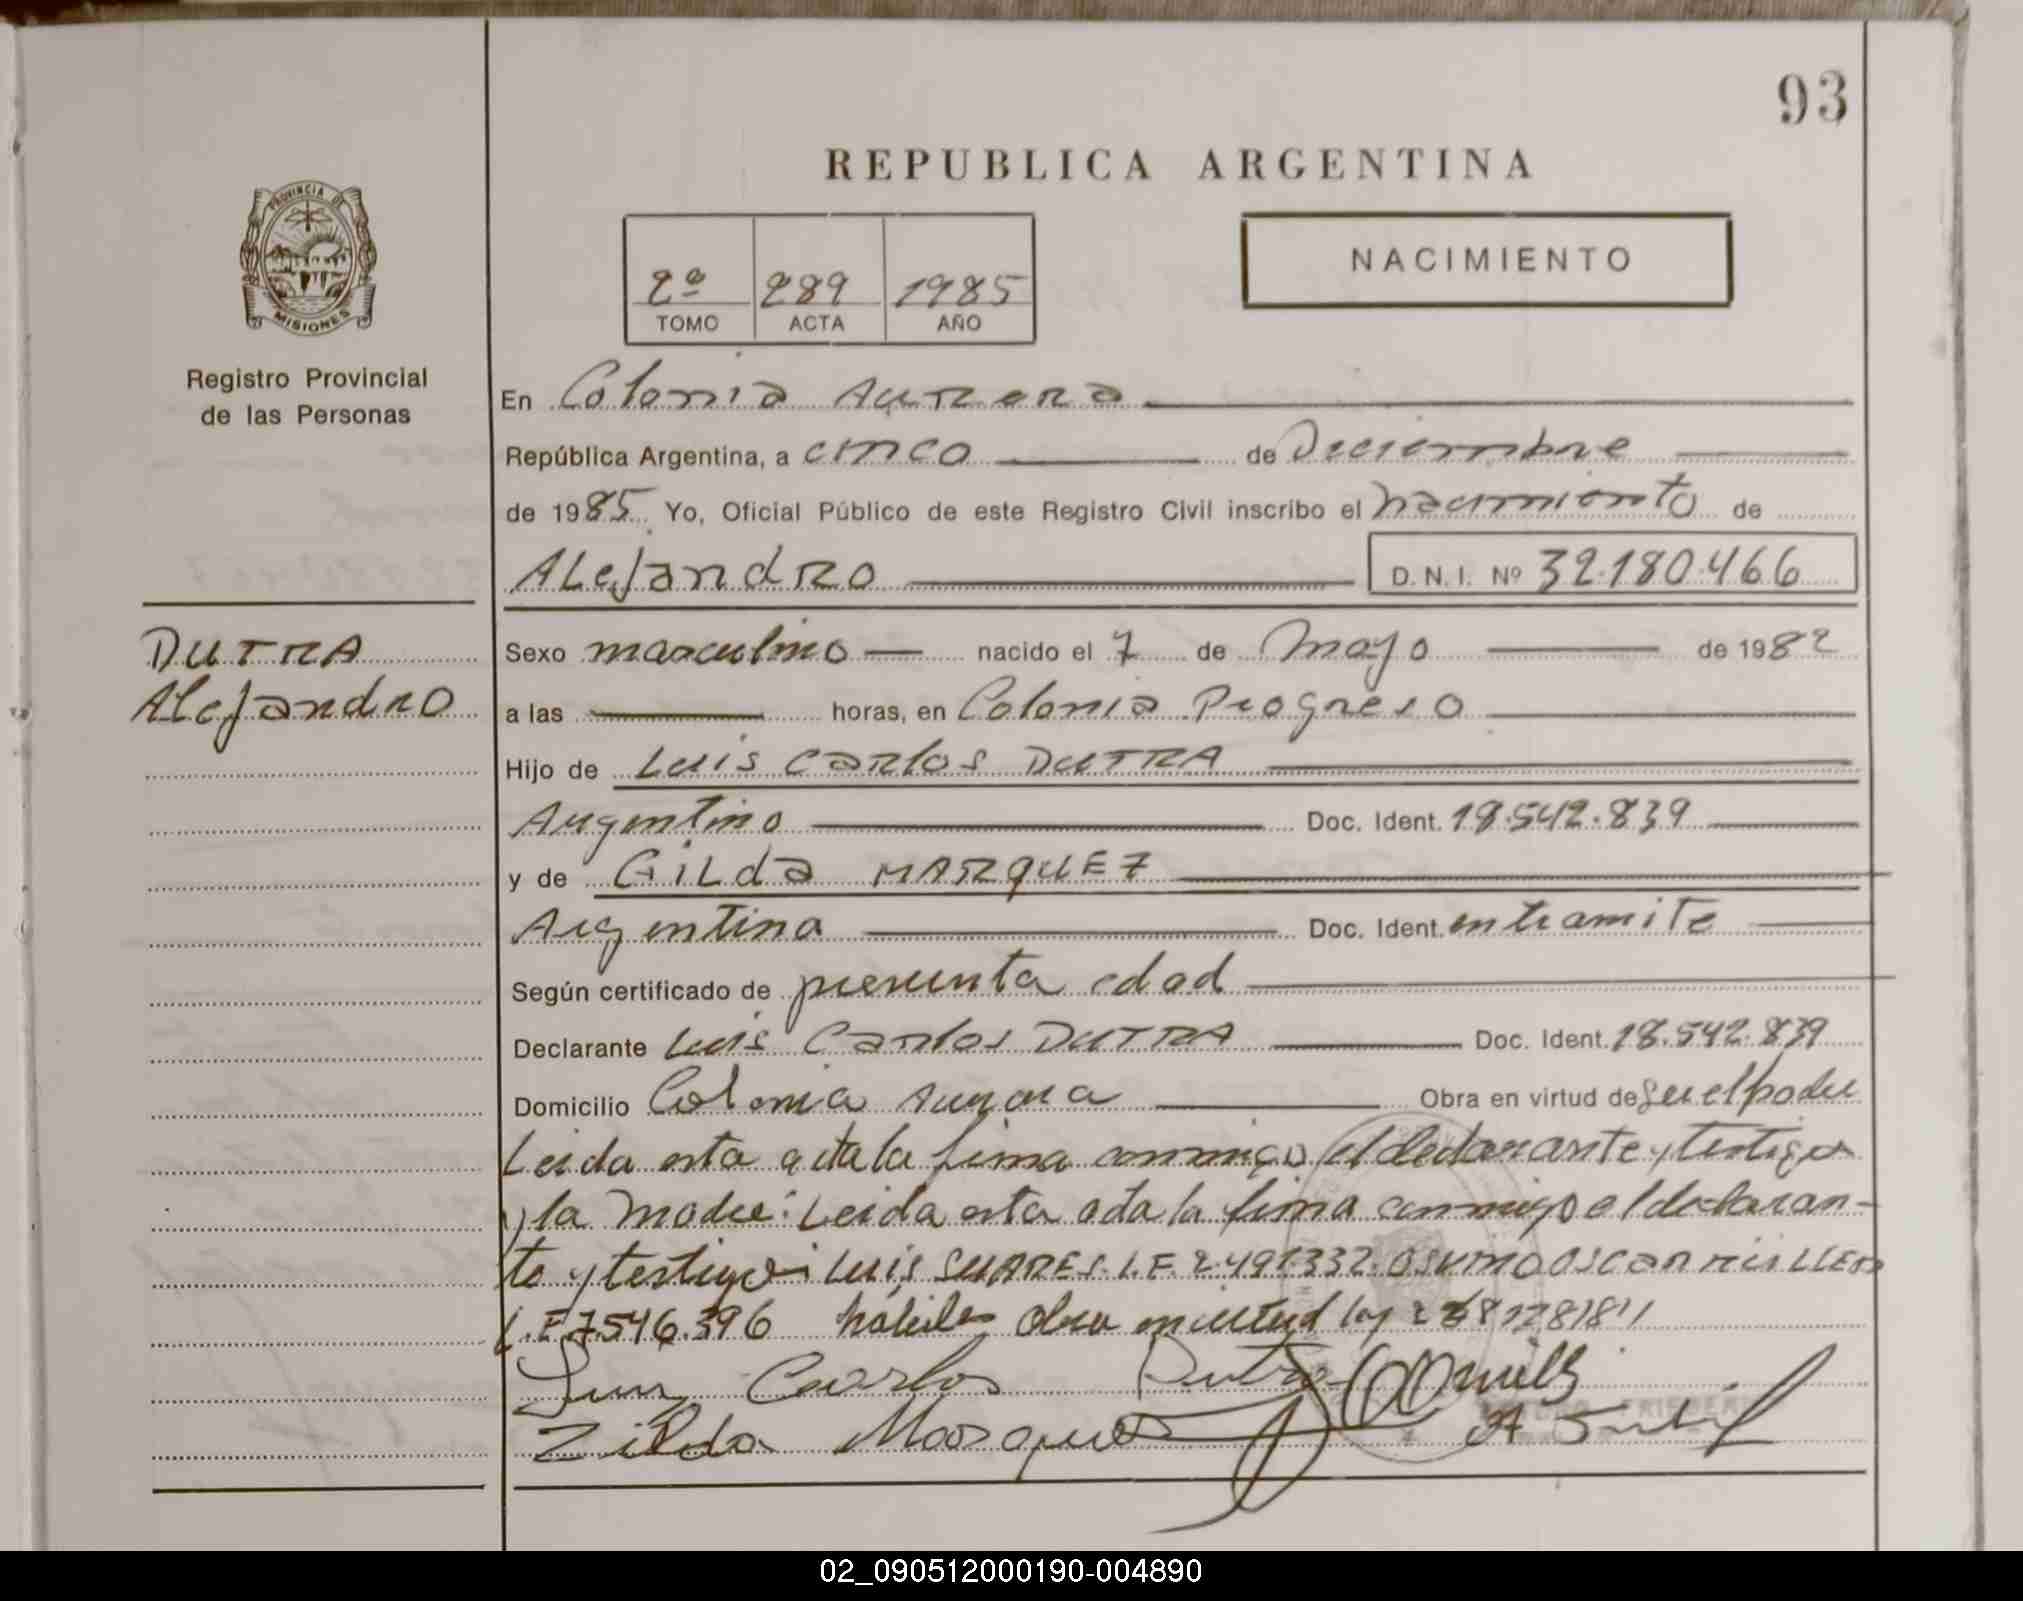 93
REPUBLICA ARGENTINA
PROVINCIA DE
MISIONES
Registro Provincial
de las Personas
2º 289 1985
TOMO ACTA AÑO
NACIMIENTO
En Colonia Aurora
República Argentina, a cinco de Diciembre
de 1985 Yo, Oficial Público de este Registro Civil inscribo el nacimiento de
Alejandro D.N.I. Nº 32.180.466
DUTRA
Alejandro
Sexo masculino nacido el 7 de Mayo de 1982
a las horas, en Colonia Progreso
Hijo de Luis Carlos DUTRA
Argentino Doc. Ident. 18.542.839
y de GILda MARQUEZ
Argentina Doc. Ident. en tramite
Según certificado de presunta edad
Declarante Luis Carlos DUTRA Doc. Ident. 18.542.839
Domicilio Colonia Aurora Obra en virtud de
Leida esta acta la firma conmigo el declarante y testigos
y la Madre: Leida esta acta la firma conmigo el declaran-
te y testigos Luis SUARES L.E. 2.491.332 Oscar
L.E 7.546.396 habiles obra en virtud ley
Luis Carlos Dutra
Zilda Marques
02_090512000190-004890